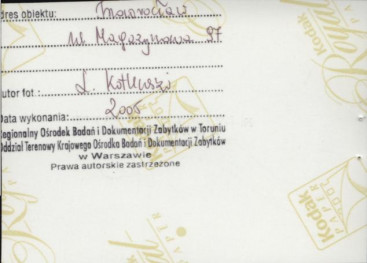 dres obiektu: Inowrocław
ul. Magazynowa 27
utor fot.: L. Kotlewski
Data wykonania: 2005
Regionalny Ośrodek Badań i Dokumentacji Zabytków w Toruniu
Oddział Terenowy Krajowego Ośrodka Badań i Dokumentacji Zabytków
w Warszawie
Prawa autorskie zastrzeżone
Kodak
PAPER